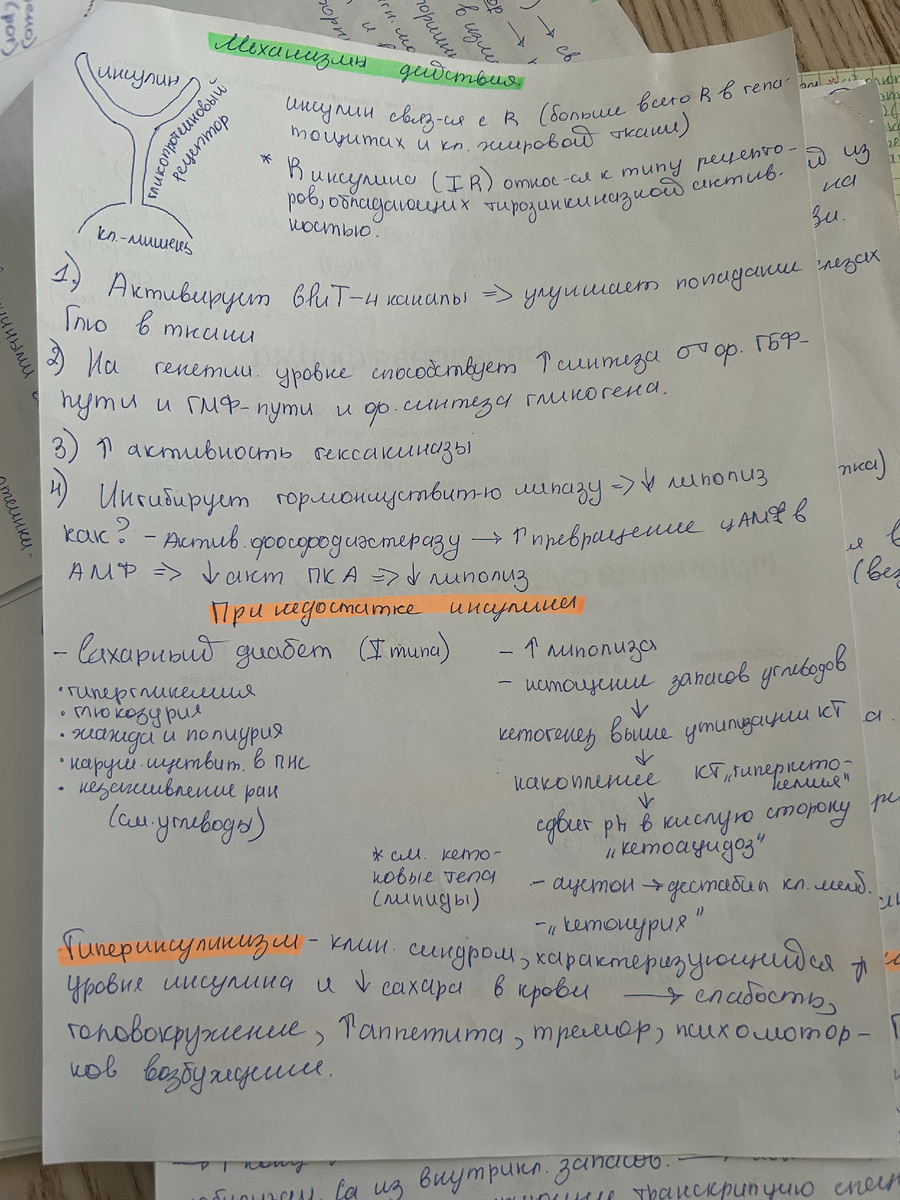 Механизмы действия.
инсулин
гликопротеиновый
рецептор
кл.-мишень
инсулин связ-ся с R (больше всего R в гепа-
тоцитах и кл. жировой ткани)
* R инсулина (IR) относ-ся к типу рецепто-
ров, обладающих тирозинкиназной актив-
ностью.
1.) Активирует GluT-4 каналы => улучшает попадание
Глю в ткани
2) На генетич. уровне способствует ↑ синтеза ф. ГБФ-
пути и ГМФ-пути и ф. синтеза гликогена.
3) ↑ активность гексакиназы
4) Ингибирует гормончувствит-ю липазу => ↓ липолиз
как? – Актив. фосфодиэстеразу → ↑ превращение цАМФ в
АМФ => ↓ акт ПКА => ↓ липолиз
При недостатке инсулина
– Сахарный диабет (I типа)
• гипергликемия
• глюкозурия
• жажда и полиурия
• наруш. чувствит. в ПНС
• незаживление ран
(см. углеводы)
– ↑ липолиза
– истощение запасов углеводов
↓
кетогенез выше утилизации КТ
↓
накопление КТ „гиперкето-
немия"
↓
сдвиг pH в кислую сторону
„кетоацидоз"
* см. кето-
новые тела
(липиды)
– ацетон → дестабил кл. мемб.
– „кетонурия"
Гиперинсулинизм – клин. синдром, характеризующийся ↑
уровня инсулина и ↓ сахара в крови → слабость,
головокружение, ↑ аппетита, тремор, психомотор-
ное возбуждение.
из
на
железах
(вез
внутрикл. запасов.
транскрипцию